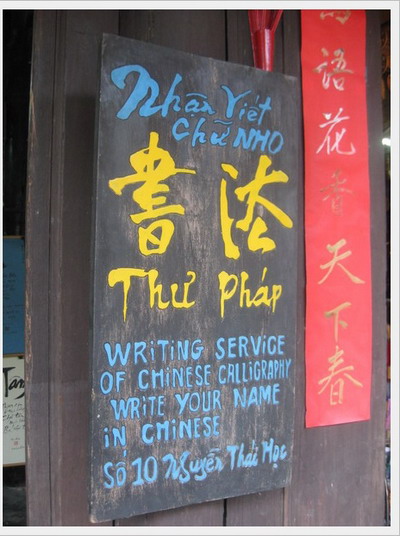 Nhận Viết
Chữ NHO
書法
Thư Pháp
WRiTiNG SERViCE
OF CHiNESE CALLiGRAPHY
WRiTE YOUR NAME
iN CHiNESE
Số 10 Nguyễn Thái Học
語花香天下春